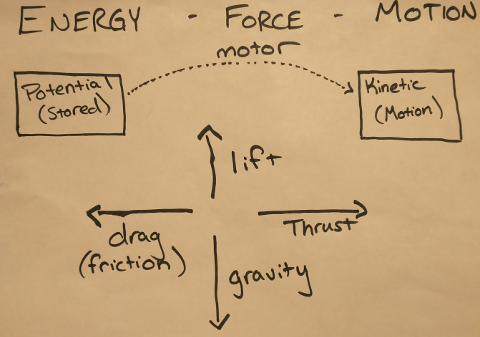 ENERGY - FORCE - MOTION
motor
Potential
(Stored)
Kinetic
(Motion)
lift
drag
(friction)
Thrust
gravity